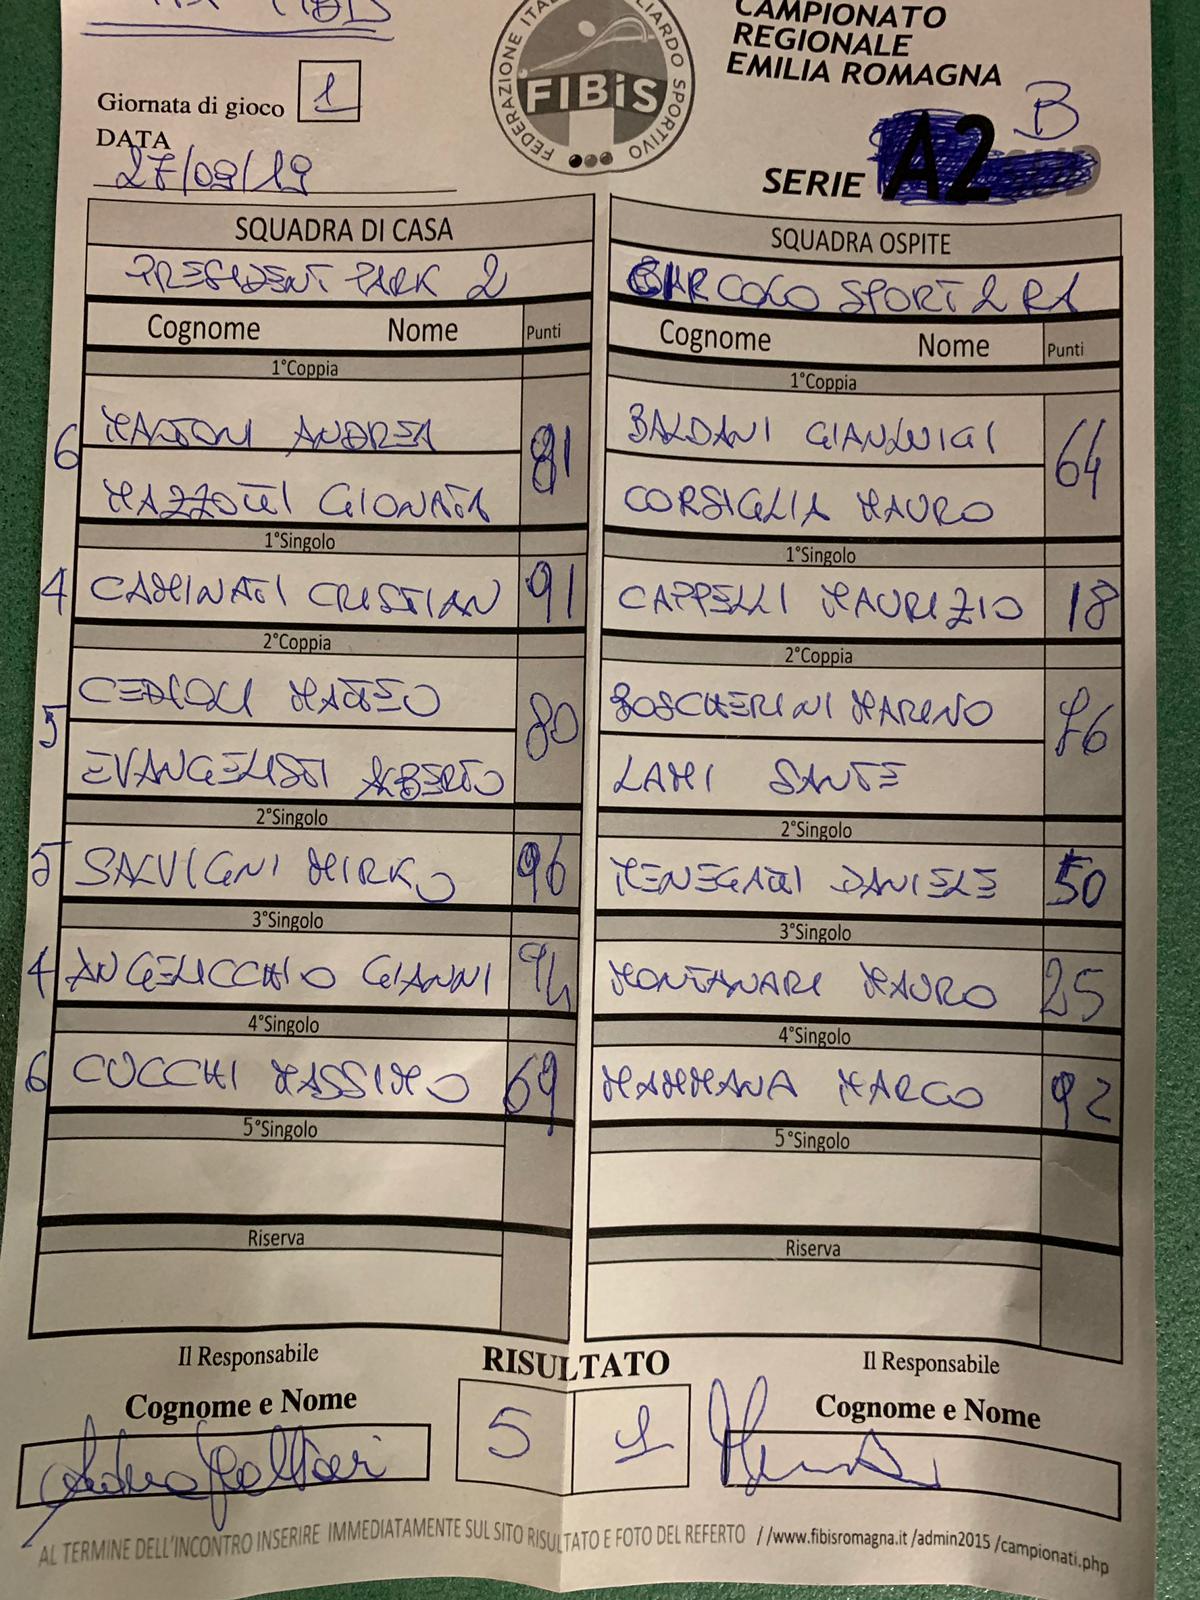 CAMPIONATO
REGIONALE
EMILIA ROMAGNA
FEDERAZIONE ITALIANA BILIARDO SPORTIVO
FIBiS
Giornata di gioco 1
DATA
27/09/19
SERIE A2 B
SQUADRA DI CASA SQUADRA OSPITE
PRESIDENT PARK 2 BAR COCO SPORT 2 RA
Cognome Nome Punti Cognome Nome Punti
1°Coppia 1°Coppia
6 MANTONI ANDREA 81 BALDANI GIANLUIGI 64
MAZZOTTI GIONATA CORSIGLIA MAURO
1°Singolo 1°Singolo
4 CAMINATI CRISTIAN 91 CAPPELLI MAURIZIO 18
2°Coppia 2°Coppia
5 MATTEO 80 BOSCHERINI MARINO 76
EVANGELISTI ALBERTO LAMI SANTE
2°Singolo 2°Singolo
5 SALVIGNI MIRKO 96 MENEGATTI DANIELE 50
3°Singolo 3°Singolo
4 ANGELICCHIO GIANNI 94 MONTANARI MAURO 25
4°Singolo 4°Singolo
6 CUCCHI MASSIMO 69 MAMMANA MARCO 92
5°Singolo 5°Singolo
Riserva Riserva
Il Responsabile RISULTATO Il Responsabile
Cognome e Nome 5 1 Cognome e Nome
AL TERMINE DELL'INCONTRO INSERIRE IMMEDIATAMENTE SUL SITO RISULTATO E FOTO DEL REFERTO //www.fibisromagna.it /admin2015 /campionati.php